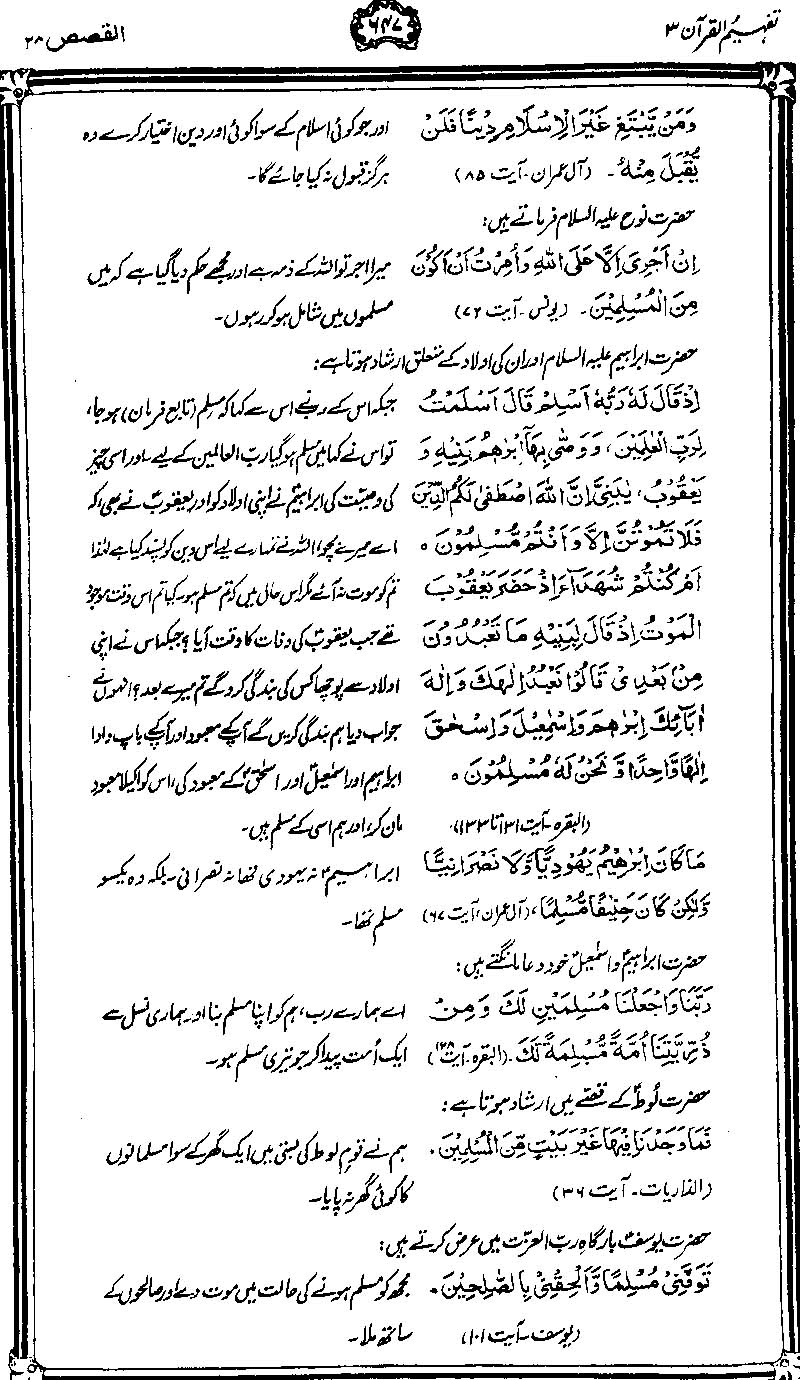 تفہیم القرآن ۳
۶۴۷
القصص ۲۸
وَمَنْ يَّبْتَغِ غَيْرَ الْاِسْلَامِ دِيْنًا فَلَنْ اور جو کوئی اسلام کے سوا کوئی اور دین اختیار کرے وہ
يُّقْبَلَ مِنْهُ۔ (آل عمران۔ آیت ۸۵) ہرگز قبول نہ کیا جائے گا۔
حضرت نوح علیہ السلام فرماتے ہیں:
اِنْ اَجْرِىَ اِلَّا عَلَى اللهِ وَاُمِرْتُ اَنْ اَكُوْنَ میرا اجر تو اللہ کے ذمہ ہے اور مجھے حکم دیا گیا ہے کہ میں
مِنَ الْمُسْلِمِيْنَ۔ (یونس۔ آیت ۷۲) مسلموں میں شامل ہو کر رہوں۔
حضرت ابراہیم علیہ السلام اور ان کی اولاد کے متعلق ارشاد ہوتا ہے:
اِذْ قَالَ لَهٗ رَبُّهٗٓ اَسْلِمْ قَالَ اَسْلَمْتُ جبکہ اس کے رب نے اس سے کہا کہ مسلم (تابع فرمان) ہو جا،
لِرَبِّ الْعٰلَمِيْنَ، وَوَصّٰى بِهَآ اِبْرٰهٖمُ بَنِيْهِ وَ تو اس نے کہا میں مسلم ہو گیا رب العالمین کے لیے۔ اور اسی چیز
يَعْقُوْبُ، يٰبَنِىَّ اِنَّ اللهَ اصْطَفٰى لَكُمُ الدِّيْنَ کی وصیت کی ابراہیمؑ نے اپنی اولاد کو اور یعقوبؑ نے بھی، کہ
فَلَا تَمُوْتُنَّ اِلَّا وَاَنْتُمْ مُّسْلِمُوْنَ ه اے میرے بچو! اللہ نے تمہارے لیے اس دین کو پسند کیا ہے لہٰذا
اَمْ كُنْتُمْ شُهَدَآءَ اِذْ حَضَرَ يَعْقُوْبَ تم کو موت نہ آئے مگر اس حال میں کہ تم مسلم ہو۔ کیا تم اس وقت موجود
الْمَوْتُ اِذْ قَالَ لِبَنِيْهِ مَا تَعْبُدُوْنَ تھے جب یعقوبؑ کی وفات کا وقت آیا؟ جبکہ اس نے اپنی
مِنْ بَعْدِىْ قَالُوْا نَعْبُدُ اِلٰهَكَ وَاِلٰهَ اولاد سے پوچھا کس کی بندگی کرو گے تم میرے بعد؟ انہوں نے
اٰبَآئِكَ اِبْرٰهٖمَ وَاِسْمٰعِيْلَ وَاِسْحٰقَ جواب دیا ہم بندگی کریں گے آپ کے معبود اور آپ کے باپ دادا
اِلٰهًا وَّاحِدًا وَّنَحْنُ لَهٗ مُسْلِمُوْنَ ه ابراہیم اور اسمٰعیلؑ اور اسحٰقؑ کے معبود کی، اس کو اکیلا معبود
(البقرہ۔ آیت ۱۳۱ تا ۱۳۳) مان کر، اور ہم اسی کے مسلم ہیں۔
مَا كَانَ اِبْرٰهِيْمُ يَهُوْدِيًّا وَّلَا نَصْرَانِيًّا ابراہیمؑ نہ یہودی تھا نہ نصرانی۔ بلکہ وہ یکسو
وَّلٰكِنْ كَانَ حَنِيْفًا مُّسْلِمًا، (آل عمران، آیت ۶۷) مسلم تھا۔
حضرت ابراہیمؑ و اسمٰعیلؑ خود دعا مانگتے ہیں:
رَبَّنَا وَاجْعَلْنَا مُسْلِمَيْنِ لَكَ وَمِنْ اے ہمارے رب، ہم کو اپنا مسلم بنا اور ہماری نسل سے
ذُرِّيَّتِنَآ اُمَّةً مُّسْلِمَةً لَّكَ۔ (البقرہ۔ آیت ۱۲۸) ایک اُمت پیدا کر جو تیری مسلم ہو۔
حضرت لُوطؑ کے قصّے میں ارشاد ہوتا ہے:
فَمَا وَجَدْنَا فِيْهَا غَيْرَ بَيْتٍ مِّنَ الْمُسْلِمِيْنَ۔ ہم نے قومِ لوط کی بستی میں ایک گھر کے سوا مسلمانوں
(الذاریات۔ آیت ۳۶) کا کوئی گھر نہ پایا۔
حضرت یوسفؑ بارگاہِ ربّ العزّت میں عرض کرتے ہیں:
تَوَفَّنِىْ مُسْلِمًا وَّاَلْحِقْنِىْ بِالصّٰلِحِيْنَ۔ مجھ کو مسلم ہونے کی حالت میں موت دے اور صالحوں کے
(یوسف۔ آیت ۱۰۱) ساتھ ملا۔